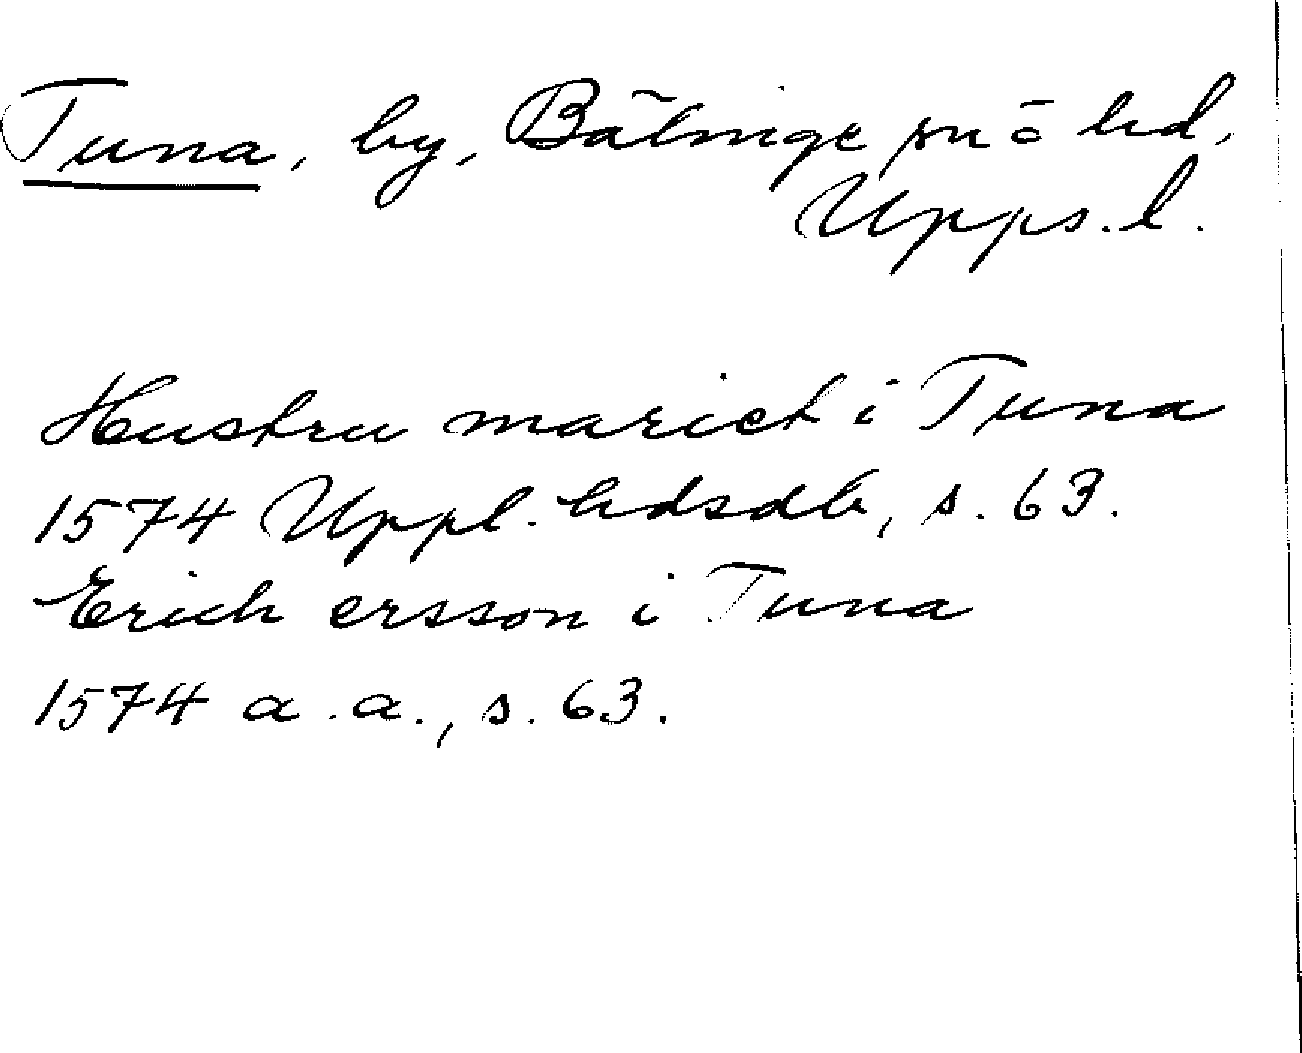 Tuna, by, Bälinge sn o hd,
Upps. l.
Hustru mariet i Tuna
1574 Uppl. hdsdb, s. 63.
Erich ersson i Tuna
1574 a. a., s. 63.